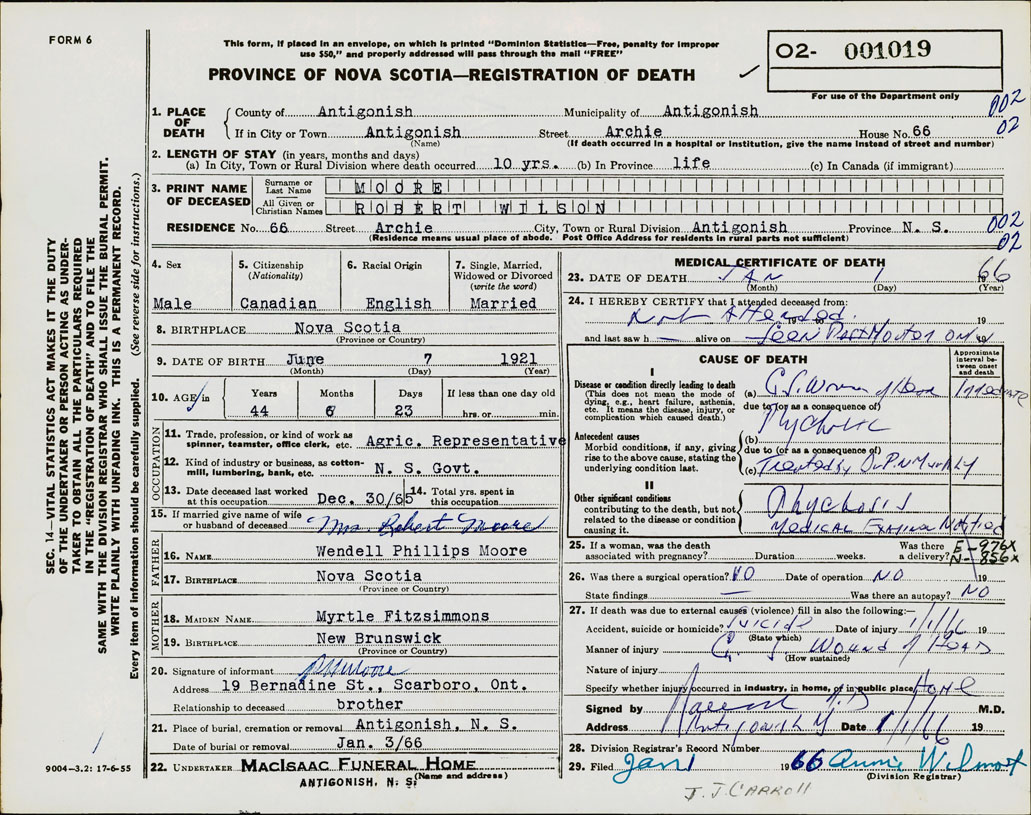 FORM 6
This form, if placed in an envelope, on which is printed "Dominion Statistics—Free, penalty for improper
use $50," and properly addressed will pass through the mail "FREE"
PROVINCE OF NOVA SCOTIA—REGISTRATION OF DEATH ✓
O2- 001019
For use of the Department only
002
02
SEC. 14—VITAL STATISTICS ACT MAKES IT THE DUTY
OF THE UNDERTAKER OR PERSON ACTING AS UNDER-
TAKER TO OBTAIN ALL THE PARTICULARS REQUIRED
IN THE "REGISTRATION OF DEATH" AND TO FILE THE
SAME WITH THE DIVISION REGISTRAR WHO SHALL ISSUE THE BURIAL PERMIT.
WRITE PLAINLY WITH UNFADING INK. THIS IS A PERMANENT RECORD.
Every item of information should be carefully supplied. (See reverse side for instructions.)
1. PLACE OF DEATH
County of Antigonish Municipality of Antigonish
If in City or Town Antigonish Street Archie House No. 66
(Name) (If death occurred in a hospital or institution, give the name instead of street and number)
2. LENGTH OF STAY (in years, months and days)
(a) In City, Town or Rural Division where death occurred 10 yrs. (b) In Province life (c) In Canada (if immigrant)
3. PRINT NAME OF DECEASED
Surname or Last Name MOORE
All Given or Christian Names ROBERT WILSON
RESIDENCE No. 66 Street Archie City, Town or Rural Division Antigonish Province N. S.
(Residence means usual place of abode. Post Office Address for residents in rural parts not sufficient)
002
02
4. Sex
Male
5. Citizenship
(Nationality)
Canadian
6. Racial Origin
English
7. Single, Married,
Widowed or Divorced
(write the word)
Married
8. BIRTHPLACE Nova Scotia
(Province or Country)
9. DATE OF BIRTH June 7 1921
(Month) (Day) (Year)
10. AGE in
Years Months Days If less than one day
44 6 23 hrs. or min.
OCCUPATION
11. Trade, profession, or kind of work as
spinner, teamster, office clerk, etc. Agric. Representative
12. Kind of industry or business, as cotton-
mill, lumbering, bank, etc. N. S. Govt.
13. Date deceased last worked
at this occupation Dec. 30/65
14. Total yrs. spent in
this occupation
15. If married give name of wife
or husband of deceased Mrs Robert Moore
FATHER
16. NAME Wendell Phillips Moore
17. BIRTHPLACE Nova Scotia
(Province or Country)
MOTHER
18. MAIDEN NAME Myrtle Fitzsimmons
19. BIRTHPLACE New Brunswick
(Province or Country)
20. Signature of informant
Address 19 Bernadine St., Scarboro, Ont.
Relationship to deceased brother
21. Place of burial, cremation or removal Antigonish, N. S.
Date of burial or removal Jan. 3/66
22. UNDERTAKER MACISAAC FUNERAL HOME
(Name and address)
ANTIGONISH, N. S.
9004—3.2: 17-6-55
MEDICAL CERTIFICATE OF DEATH
23. DATE OF DEATH JAN 1 66
(Month) (Day) (Year)
24. I HEREBY CERTIFY that I attended deceased from:
Not Attended. 19 19
and last saw h alive on Seen Post Mortem only 19
CAUSE OF DEATH
Approximate interval between onset and death
I
Disease or condition directly leading to death
(This does not mean the mode of
dying, e.g., heart failure, asthenia,
etc. It means the disease, injury, or
complication which caused death.)
(a) G.S. Wound of Head Immediate
due to (or as a consequence of)
Antecedent causes
Morbid conditions, if any, giving
rise to the above cause, stating the
underlying condition last.
(b) Psychosis
due to (or as a consequence of)
(c) Treated by Dr P.N Murphy
II
Other significant conditions
contributing to the death, but not
related to the disease or condition
causing it.
Phychosis
Medical Examiner Notified
25. If a woman, was the death
associated with pregnancy? Duration weeks. Was there
a delivery?
E-976X
N-856X
26. Was there a surgical operation? NO Date of operation NO 19
State findings — Was there an autopsy? NO
27. If death was due to external causes (violence) fill in also the following:—
Accident, suicide or homicide? Suicide Date of injury 1/1/66 19
(State which)
Manner of injury G. S. Wound of Head
(How sustained)
Nature of injury
Specify whether injury occurred in industry, in home, or in public place Home
Signed by M.D.
Address Antigonish Date 1/1/66 19
28. Division Registrar's Record Number
29. Filed Jan 1 1966 Annie Wilmot
(Division Registrar)
J. J. CARROLL